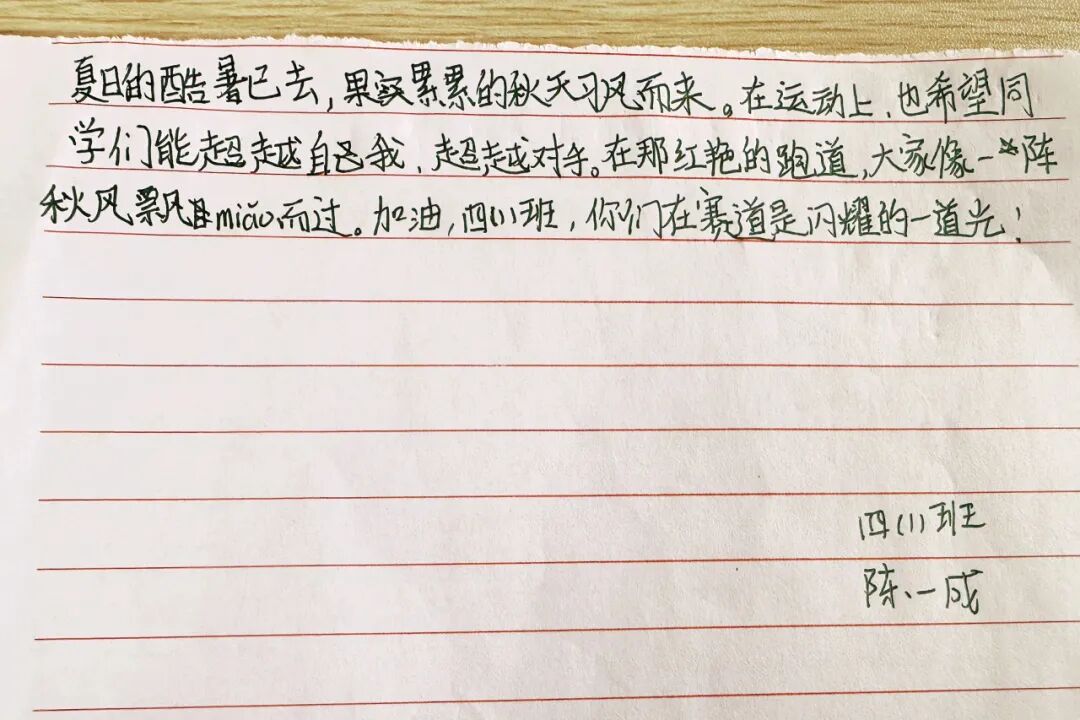 夏日的酷暑已去,果实累累的秋天习风而来。在运动上,也希望同
学们能超越自己我,超越对手。在那红艳的跑道,大家像一阵
秋风飘目miǎo而过。加油,四(1)班,你们在赛道是闪耀的一道光!
四(1)班
陈一成